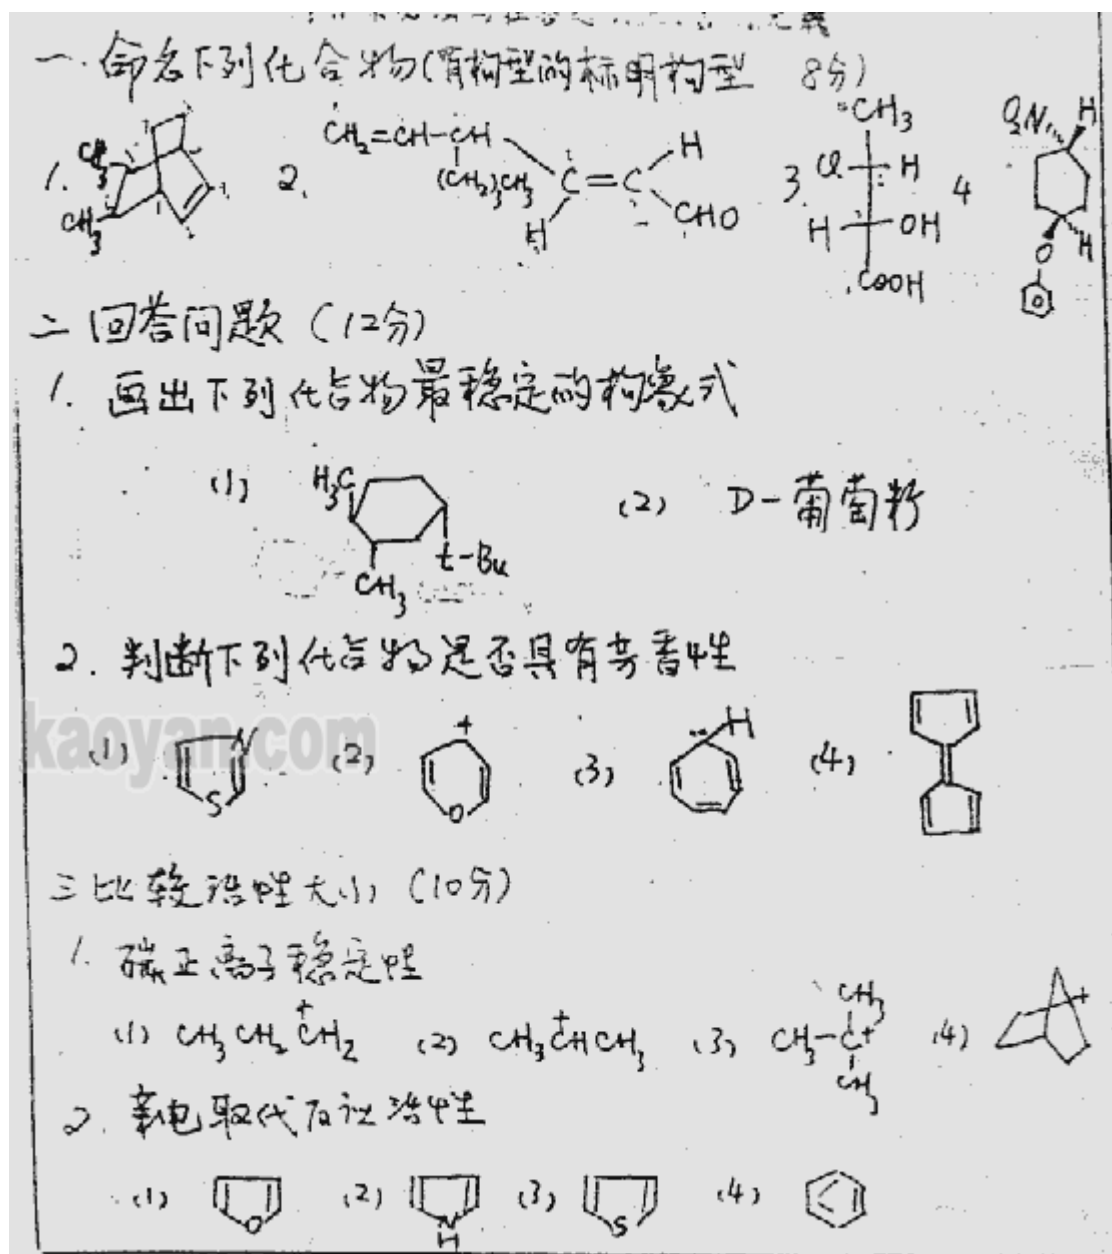 一. 命名下列化合物(有构型的标明构型 8分)
1. CH3 CH3 2. CH2=CH-CH (CH2)3CH3 C=C H H CHO 3. CH3 Cl H H OH COOH 4 O2N H O H
二 回答问题 (12分)
1. 画出下列化合物最稳定的构象式
(1) H3C CH3 t-Bu (2) D-葡萄糖
2. 判断下列化合物是否具有芳香性
kaoyan.com
(1) N S (2) + O (3) H (4)
三 比较活性大小 (10分)
1. 碳正离子稳定性
(1) CH3CH2CH2+ (2) CH3C+HCH3 (3) CH3-C+ CH3 CH3 (4) +
2. 亲电取代反应活性
(1) O (2) N H (3) S (4)